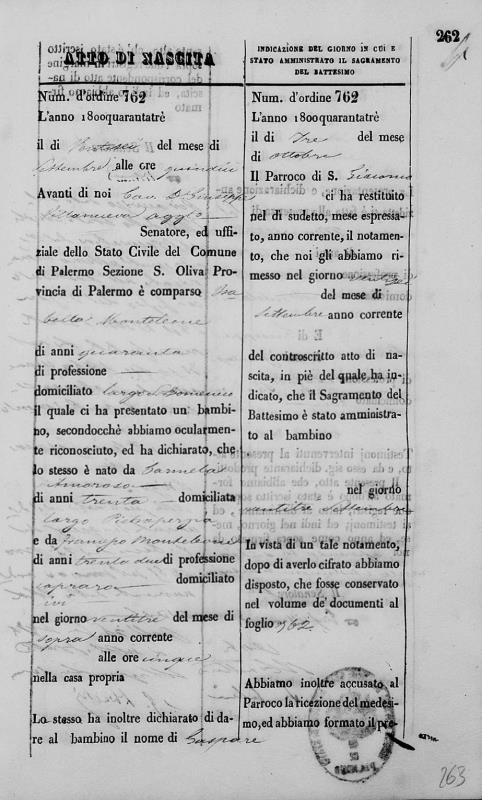 262
ATTO DI NASCITA
Num. d'ordine 762
L'anno 1800quarantatrè
il di del mese di
Settembre alle ore quindici
Avanti di noi Cav. D. Giuseppe
Villanueva Aggto
Senatore, ed uffi-
ziale dello Stato Civile del Comune
di Palermo Sezione S. Oliva Pro-
vincia di Palermo è comparso Isa
bella Monteleone
di anni quaranta
di professione —
domiciliato largo S. Domenico
il quale ci ha presentato un bambi-
no, secondocchè abbiamo ocularmen-
te riconosciuto, ed ha dichiarato, che
lo stesso è nato da Carmela
Amoroso
di anni trenta domiciliata
largo
e da Francesco Monteleone
di anni trenta due di professione
domiciliato
ivi
nel giorno ventitre del mese di
sopra anno corrente
alle ore cinque
nella casa propria
Lo stesso ha inoltre dichiarato di da-
re al bambino il nome di Gaspare
INDICAZIONE DEL GIORNO IN CUI E
STATO AMMINISTRATO IL SAGRAMENTO
DEL BATTESIMO
Num. d'ordine 762
L'anno 1800quarantatrè
il di Tre del mese
di ottobre
Il Parroco di S. Giacomo
ci ha restituito
nel di sudetto, mese espressa-
to, anno corrente, il notamen-
to, che noi gli abbiamo ri-
messo nel giorno
del mese di
Settembre anno corrente
del controscritto atto di na-
scita, in piè del quale ha in-
dicato, che il Sagramento del
Battesimo è stato amministra-
to al bambino
nel giorno
ventitre Settembre
In vista di un tale notamento,
dopo di averlo cifrato abbiamo
disposto, che fosse conservato
nel volume de' documenti al
foglio 762
Abbiamo inoltre accusato al
Parroco la ricezione del medesi-
mo, ed abbiamo formato il pre-
263